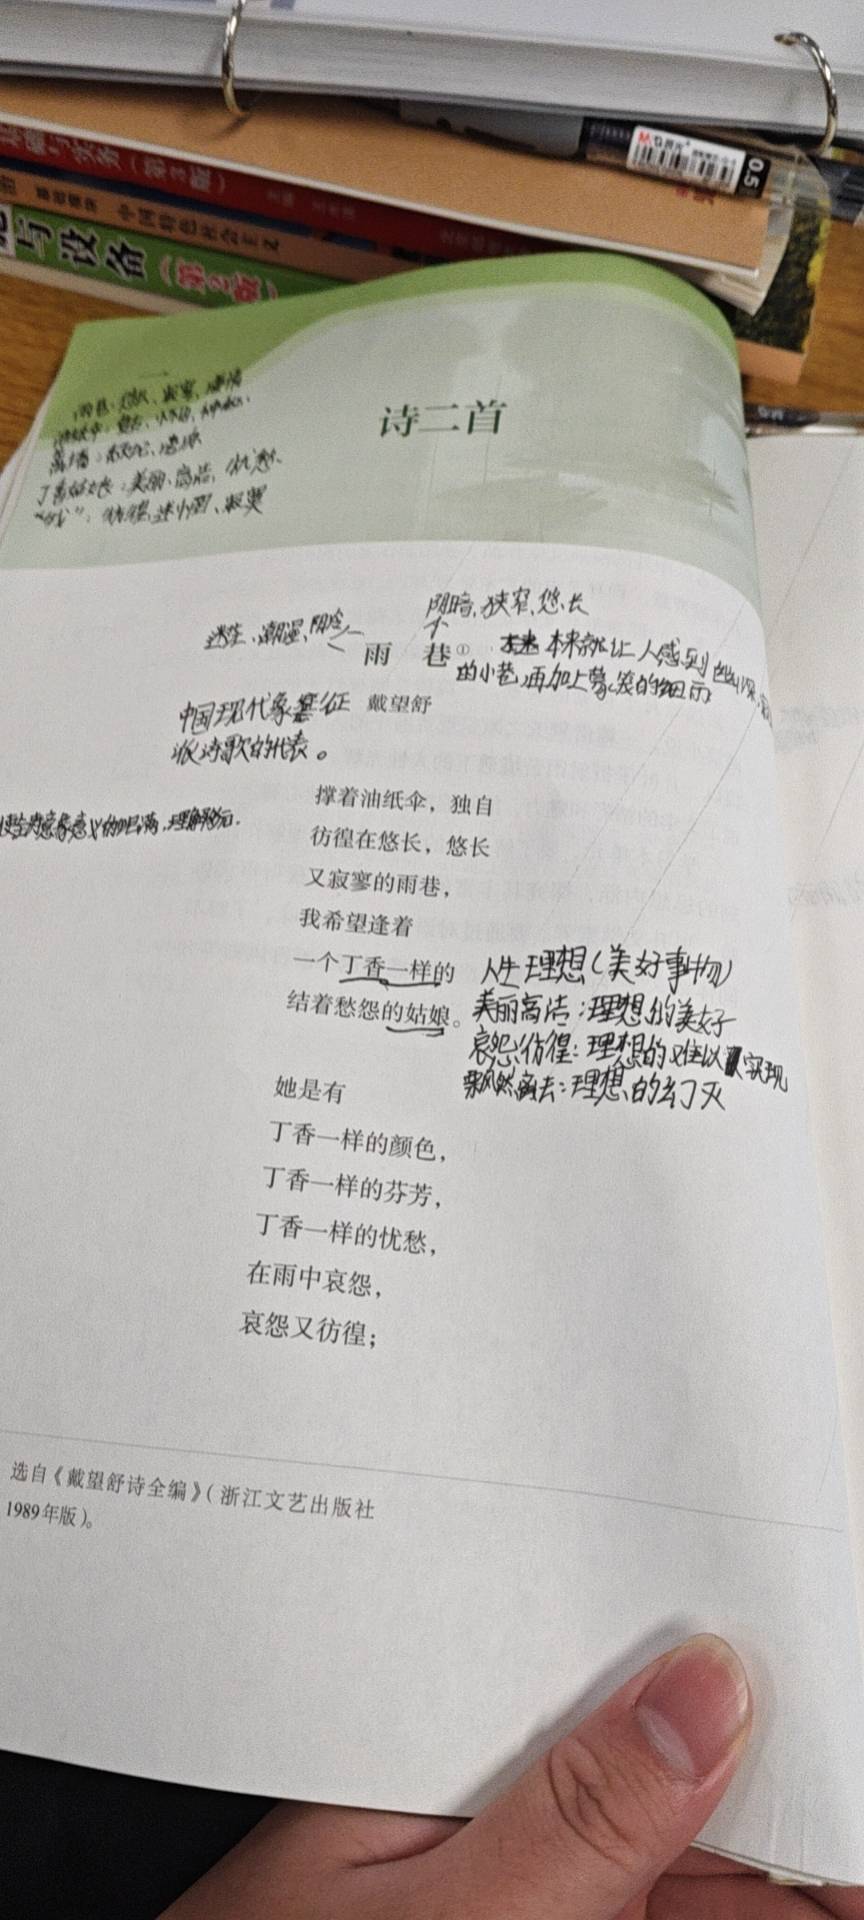 0.5
与实务（第3版）
中国特色社会主义
与设备（第2版）
诗二首
丁香姑娘：美丽、高洁、忧愁、
“我”：彷徨、迷惘、寂寞
阴暗、狭窄、悠长
迷茫、潮湿、阴冷
雨巷①
本来就让人感到幽深、
的小巷，再加上蒙蒙的细雨
中国现代象征
戴望舒
派诗歌的代表。
撑着油纸伞，独自
彷徨在悠长，悠长
又寂寥的雨巷，
我希望逢着
一个丁香一样的
结着愁怨的姑娘。
人生理想（美好事物）
美丽高洁：理想的美好
哀怨彷徨：理想的难以实现
飘然离去：理想的幻灭
她是有
丁香一样的颜色，
丁香一样的芬芳，
丁香一样的忧愁，
在雨中哀怨，
哀怨又彷徨；
选自《戴望舒诗全编》（浙江文艺出版社
1989年版）。